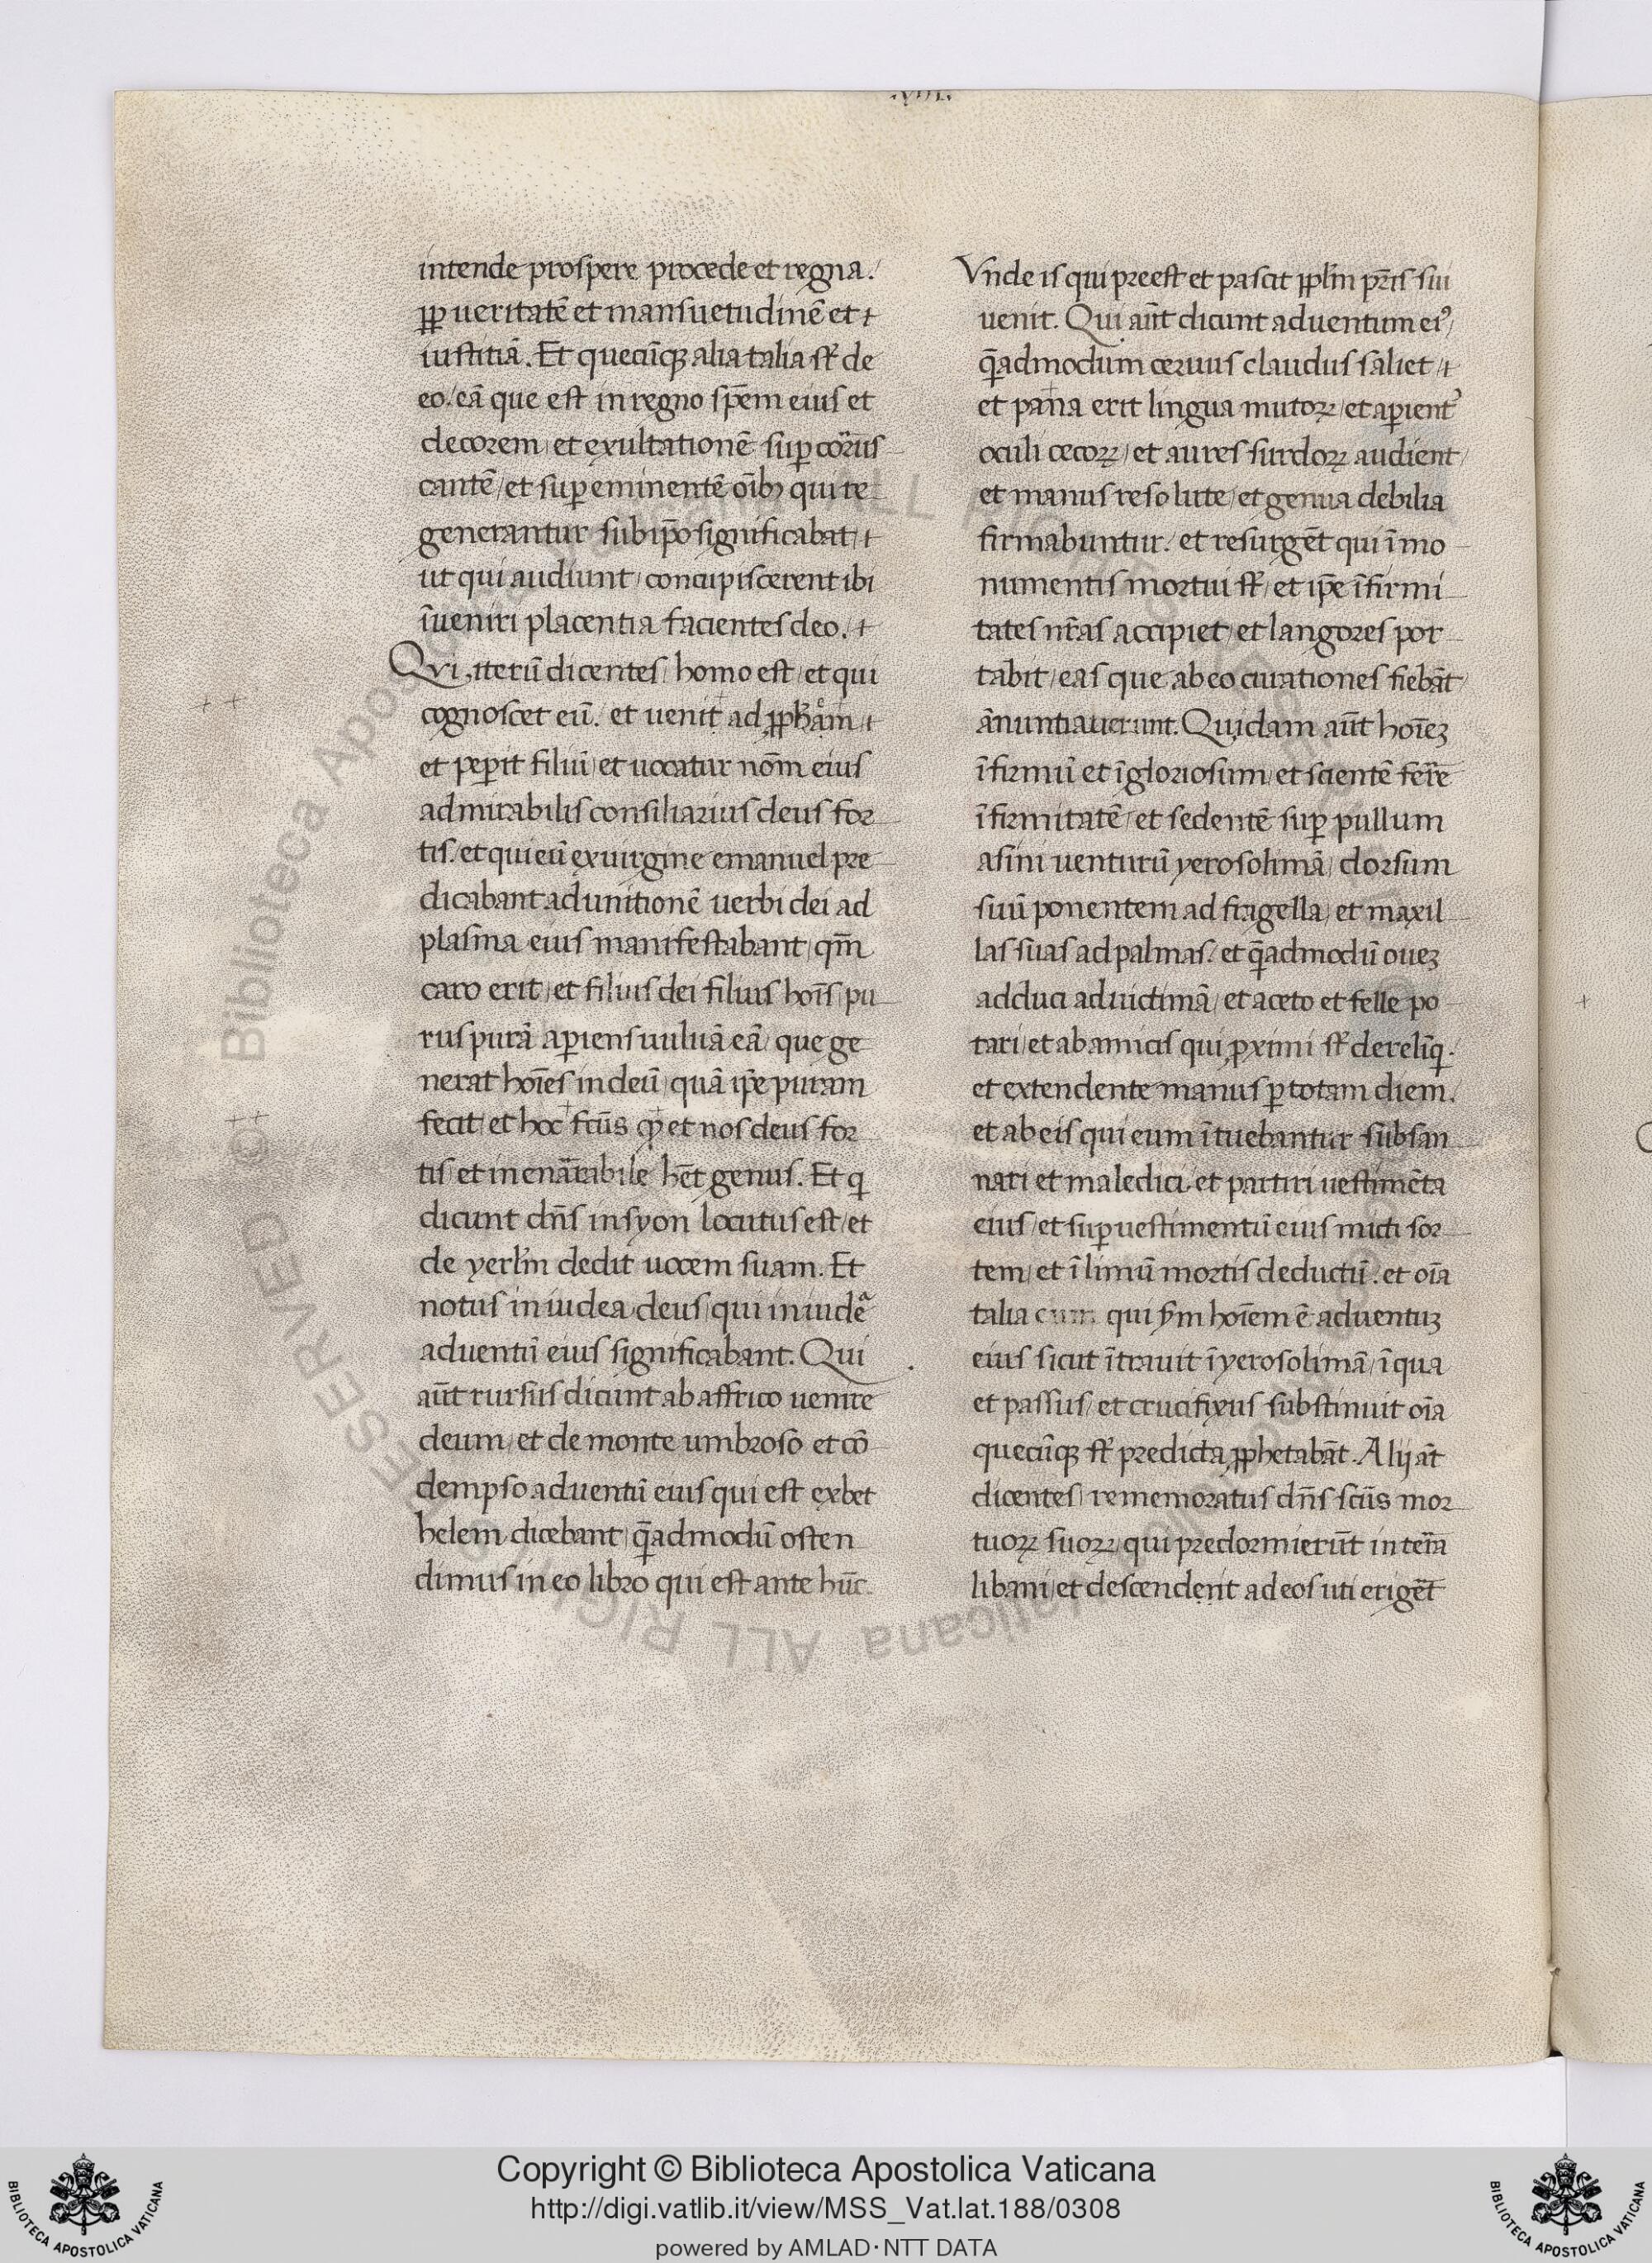 intende prospere procede et regna./
ꝓp ueritatē et mansuetudinē et
iustitiā. Et quecūqꝫ alia talia st̄ de
eo/ eā que est in regno spēm eius et
decorem/ et exultationē suꝑ cōrus
cantē/ et suꝑeminentē oībꝫ qui re
generantur sub ip̄o significabat/
ut qui audiunt/ concupiscerent ibi
īueniri placentia facientes deo./
Qui iterū dicentes/ homo est/ et qui
cognoscet eū./ et uenit ad ꝓph̄am
et peꝑit filiū/ et uocatur nōm eius
admirabilis consiliarius deus for
tis./ et qui eū ex uirgine emanuel pre
dicabant adunitionē uerbi dei ad
plasma eius manifestabant/ qm̄
caro erit/ et filius dei filius hoīs/ pu
rus purā aꝑiens uuluā eā/ que ge
nerat hoīes in deū/ quā ip̄e puram
fecit/ et hoc fcūs ꝙ et nos deus for
tis/ et inenārrabile hēt genus. Et q
dicunt dn̄s in syon locutus est/ et
de yerlm̄ dedit uocem suam. Et
notus in iudea deus/ qui in iudeª
aduentū eius significabant. Qui
aūt rursus dicunt ab affrico uenire
deum/ et de monte umbroso et cō
dempso aduentū eius qui est ex bet
helem dicebant/ qᷓadmodū osten
dimus in eo libro qui est ante hūc.
Vnde is qui preest et pascit ꝓplm̄ pr̄is sui
uenit. Qui aūt dicunt aduentum eiꝰ/
qᷓadmodum ceruus claudus saliet/
et pana erit lingua mutoꝝ/ et aꝑientᷣ
oculi cecoꝝ/ et aures surdoꝝ audient/
et manus resolute/ et genua debilia
firmabuntur./ et resurgēt qui ī mo
numentis mortui st̄/ et ip̄e īfirmi
tates nr̄as accipiet/ et langores por
tabit/ eas que ab eo curationes fiebāt/
ānuntiauerunt. Quidam aūt hoīeꝫ
īfirmū et īgloriosum/ et scientē ferre
īfirmitatē/ et sedentē suꝑ pullum
asini uenturū yerosolimā/ dorsum
suū ponentem ad fragella/ et maxil
las suas ad palmas./ et qᷓadmodū oueꝫ
adduci ad uictimā/ et aceto et felle po
tari/ et ab amicis qui ꝓximi st̄ derelīq.
et extendente manus ꝑ totam diem./
et ab eis qui eum ītuebantur subsan
nari et maledici/ et partiri uestimēta
eius/ et suꝑ uestimentū eius micti sor
tem/ et ī limū mortis deductū./ et oīa
talia cum qui ẜm hoīem ē aduentuꝫ
eius sicut ītrauit ī yerosolimā/ ī qua
et passus/ et crucifixus substinuit oīa
quecūqꝫ st̄ predicta ꝓphetabāt. Alij āt
dicentes/ rememoratus dn̄s scūs mor
tuoꝝ suoꝝ/ qui predormierūt in terra
libani/ et descendent ad eos uti erigēt
Copyright © Biblioteca Apostolica Vaticana
http://digi.vatlib.it/view/MSS_Vat.lat.188/0308
powered by AMLAD·NTT DATA
BIBLIOTECA APOSTOLICA VATICANA
BIBLIOTECA APOSTOLICA VATICANA